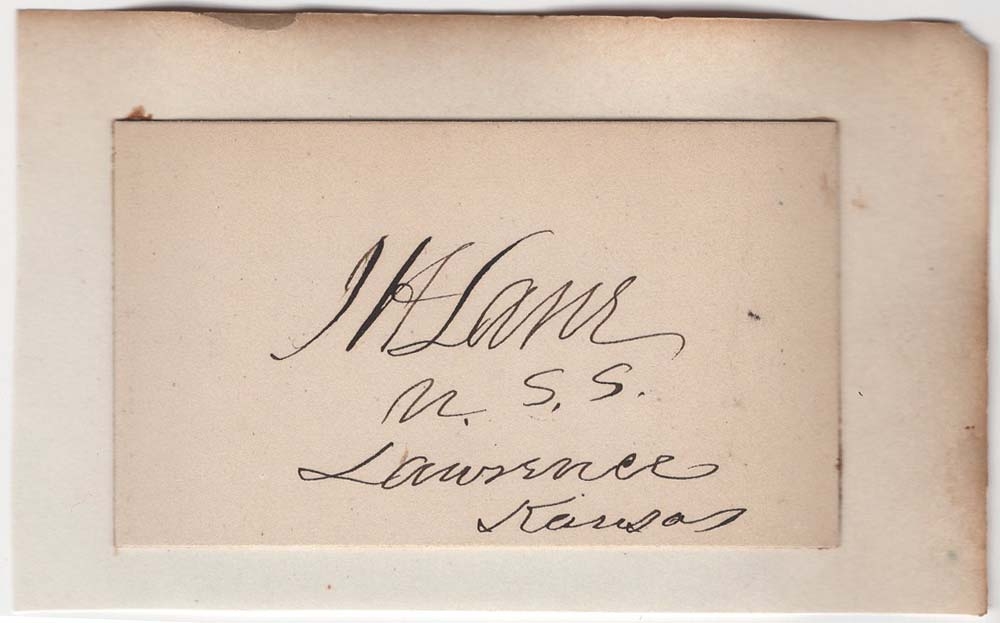 J H Lane
U. S. S.
Lawrence
Kansas